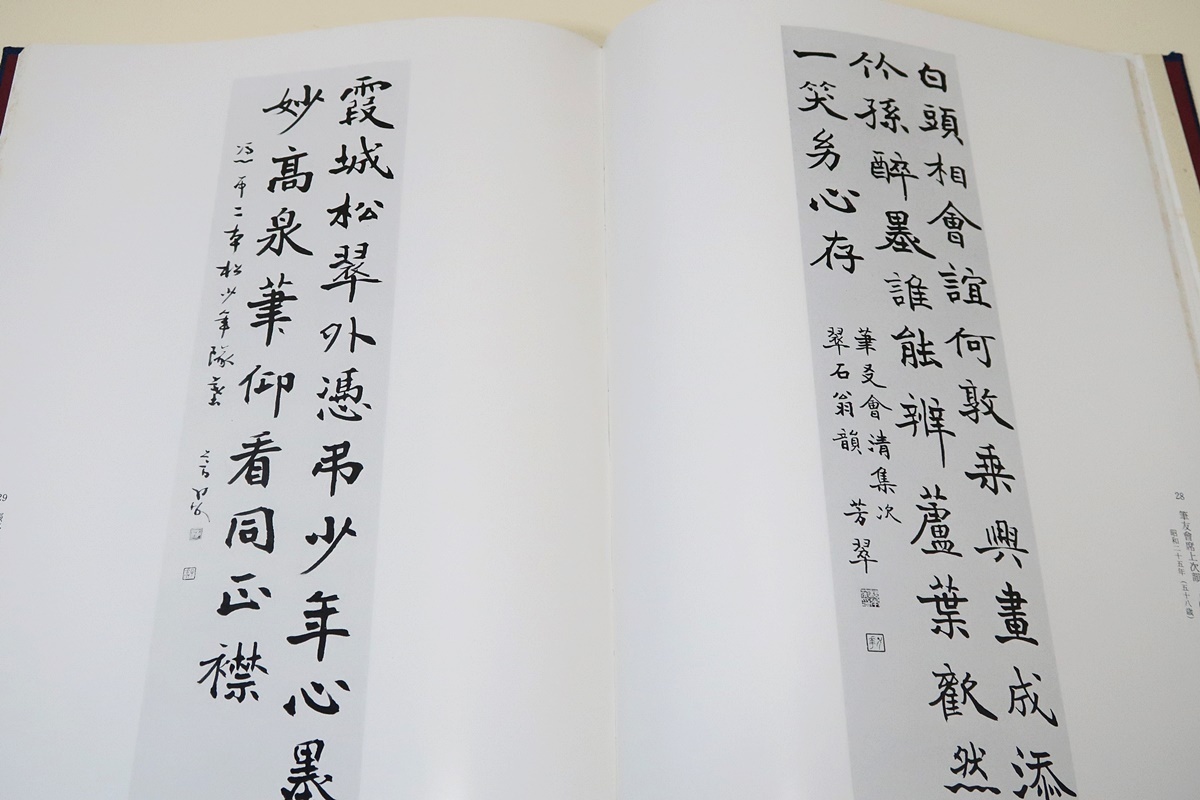 28 筆友會席上次韻
昭和二十五年（五十八歳）
白頭相會誼何敦乘興畫成添
竹孫醉墨誰能辨蘆葉歡然
一笑幼心存
筆友會清集次
翠石翁韻 芳翠
霞城松翠外憑弔少年心墨
妙高泉筆仰看同正襟
憑弔二本松少年隊墓
29